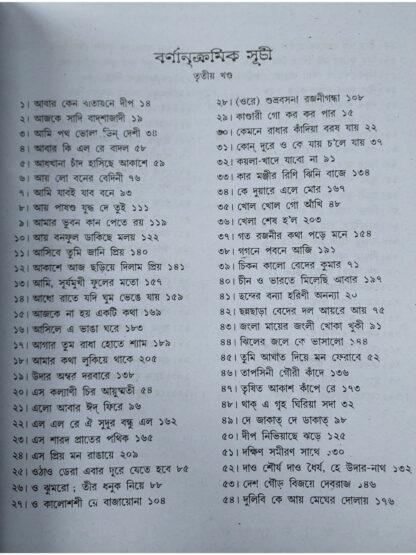 বর্ণানুক্রমিক সূচী
তৃতীয় খণ্ড
১। আবার কেন বাতায়নে দীপ ১৪
২। আজকে সাদি বাদ্‌শাজাদী ১৯
৩। আমি পথ ভোলা ভিন্ দেশী ৩৪
৪। আবার কি এল রে বাদল ৫৮
৫। আধখানা চাঁদ হাসিছে আকাশে ৫৯
৬। আয় লো বনের বেদিনী ৭৬
৭। আমি যাবই যাব বনে ৯৩
৮। আয় পাষণ্ড যুদ্ধ দে তুই ১১১
৯। আমার ভুবন কান পেতে রয় ১১৯
১০। আয় বনফুল ডাকিছে মলয় ১২২
১১। আসিবে তুমি জানি প্রিয় ১৪০
১২। আকাশে আজ ছড়িয়ে দিলাম প্রিয় ১৪১
১৩। আমি, সূর্যমুখী ফুলের মতো ১৫৭
১৪। আধো রাতে যদি ঘুম ভেঙে যায় ১৫৯
১৫। আজকে না হয় একটি কথা ১৬৯
১৬। আসিলে এ ভাঙা ঘরে ১৮৩
১৭। আগার তুম রাধা হোতে শ্যাম ১৮৯
১৮। আমার কথা লুকিয়ে থাকে ২০৫
১৯। উদার অম্বর দরবারে ১৩৮
২০। এস কল্যাণী চির আয়ুষ্মতী ৫৪
২১। এলো আবার ঈদ্ ফিরে ৯৬
২২। এল এল রে ঐ সুদূর বন্ধু এল ১৬২
২৩। এস শারদ প্রাতের পথিক ১৬৫
২৪। এস প্রিয় মন রাঙায়ে ২০৯
২৫। ওঠাও ডেরা এবার দূরে যেতে হবে ৮৫
২৬। ও ঝুমরো; তীর ধনুক নিয়ে ৮৮
২৭। ও কালোশশী রে বাজায়োনা ১০৪
২৮। (ওরে) শুভ্রবসনা রজনীগন্ধা ১০৮
২৯। কাণ্ডারী গো কর কর পার ১৫
৩০। কেমনে রাধার কাঁদিয়া বরষ যায় ২২
৩১। কোন্ দূরে ও কে যায় চ'লে যায় ৩৭
৩২। কয়লা-খাদে যাবো না ৯১
৩৩। কার মঞ্জীর রিণি ঝিনি বাজে ১৩৪
৩৪। কে দুয়ারে এলে মোর ১৬৭
৩৫। খোল খোল গো আঁখি ৪৮
৩৬। খেলা শেষ হ'ল ২০৩
৩৭। গত রজনীর কথা পড়ে মনে ১৫৪
৩৮। গগনে পবনে আজি ১৯১
৩৯। চিকন কালো বেদের কুমার ৭১
৪০। চীন ও ভারতে মিলেছি আবার ১৯৭
৪১। ছন্দের বন্যা হরিণী অনন্যা ২০
৪২। ছন্নছাড়া বেদের দল আয়রে আয় ৭৫
৪৩। জংলা মায়ের জংলী খোকা খুকী ৯১
৪৪। ঝিলের জলে কে ভাসালো ১৪৪
৪৫। তুমি আঘাত দিয়ে মন ফেরাবে ৫২
৪৬। তাপসিনী গৌরী কাঁদে ১৩৬
৪৭। তৃষিত আকাশ কাঁপে রে ১৭৩
৪৮। থাক্ এ গৃহ ঘিরিয়া সদা ৩২
৪৯। দে জাকাত্ দে জাকাত্ ৯৮
৫০। দীপ নিভিয়াছে ঝড়ে ১২৫
৫১। দক্ষিণ সমীরণ সাথে ৩০
৫২। দাও শৌর্য দাও ধৈর্য, হে উদার-নাথ ১৩২
৫৩। দেশ গৌড় বিজয়ে দেবরাজ ১৪৬
৫৪। দুলিবি কে আয় মেঘের দোলায় ১৭৬